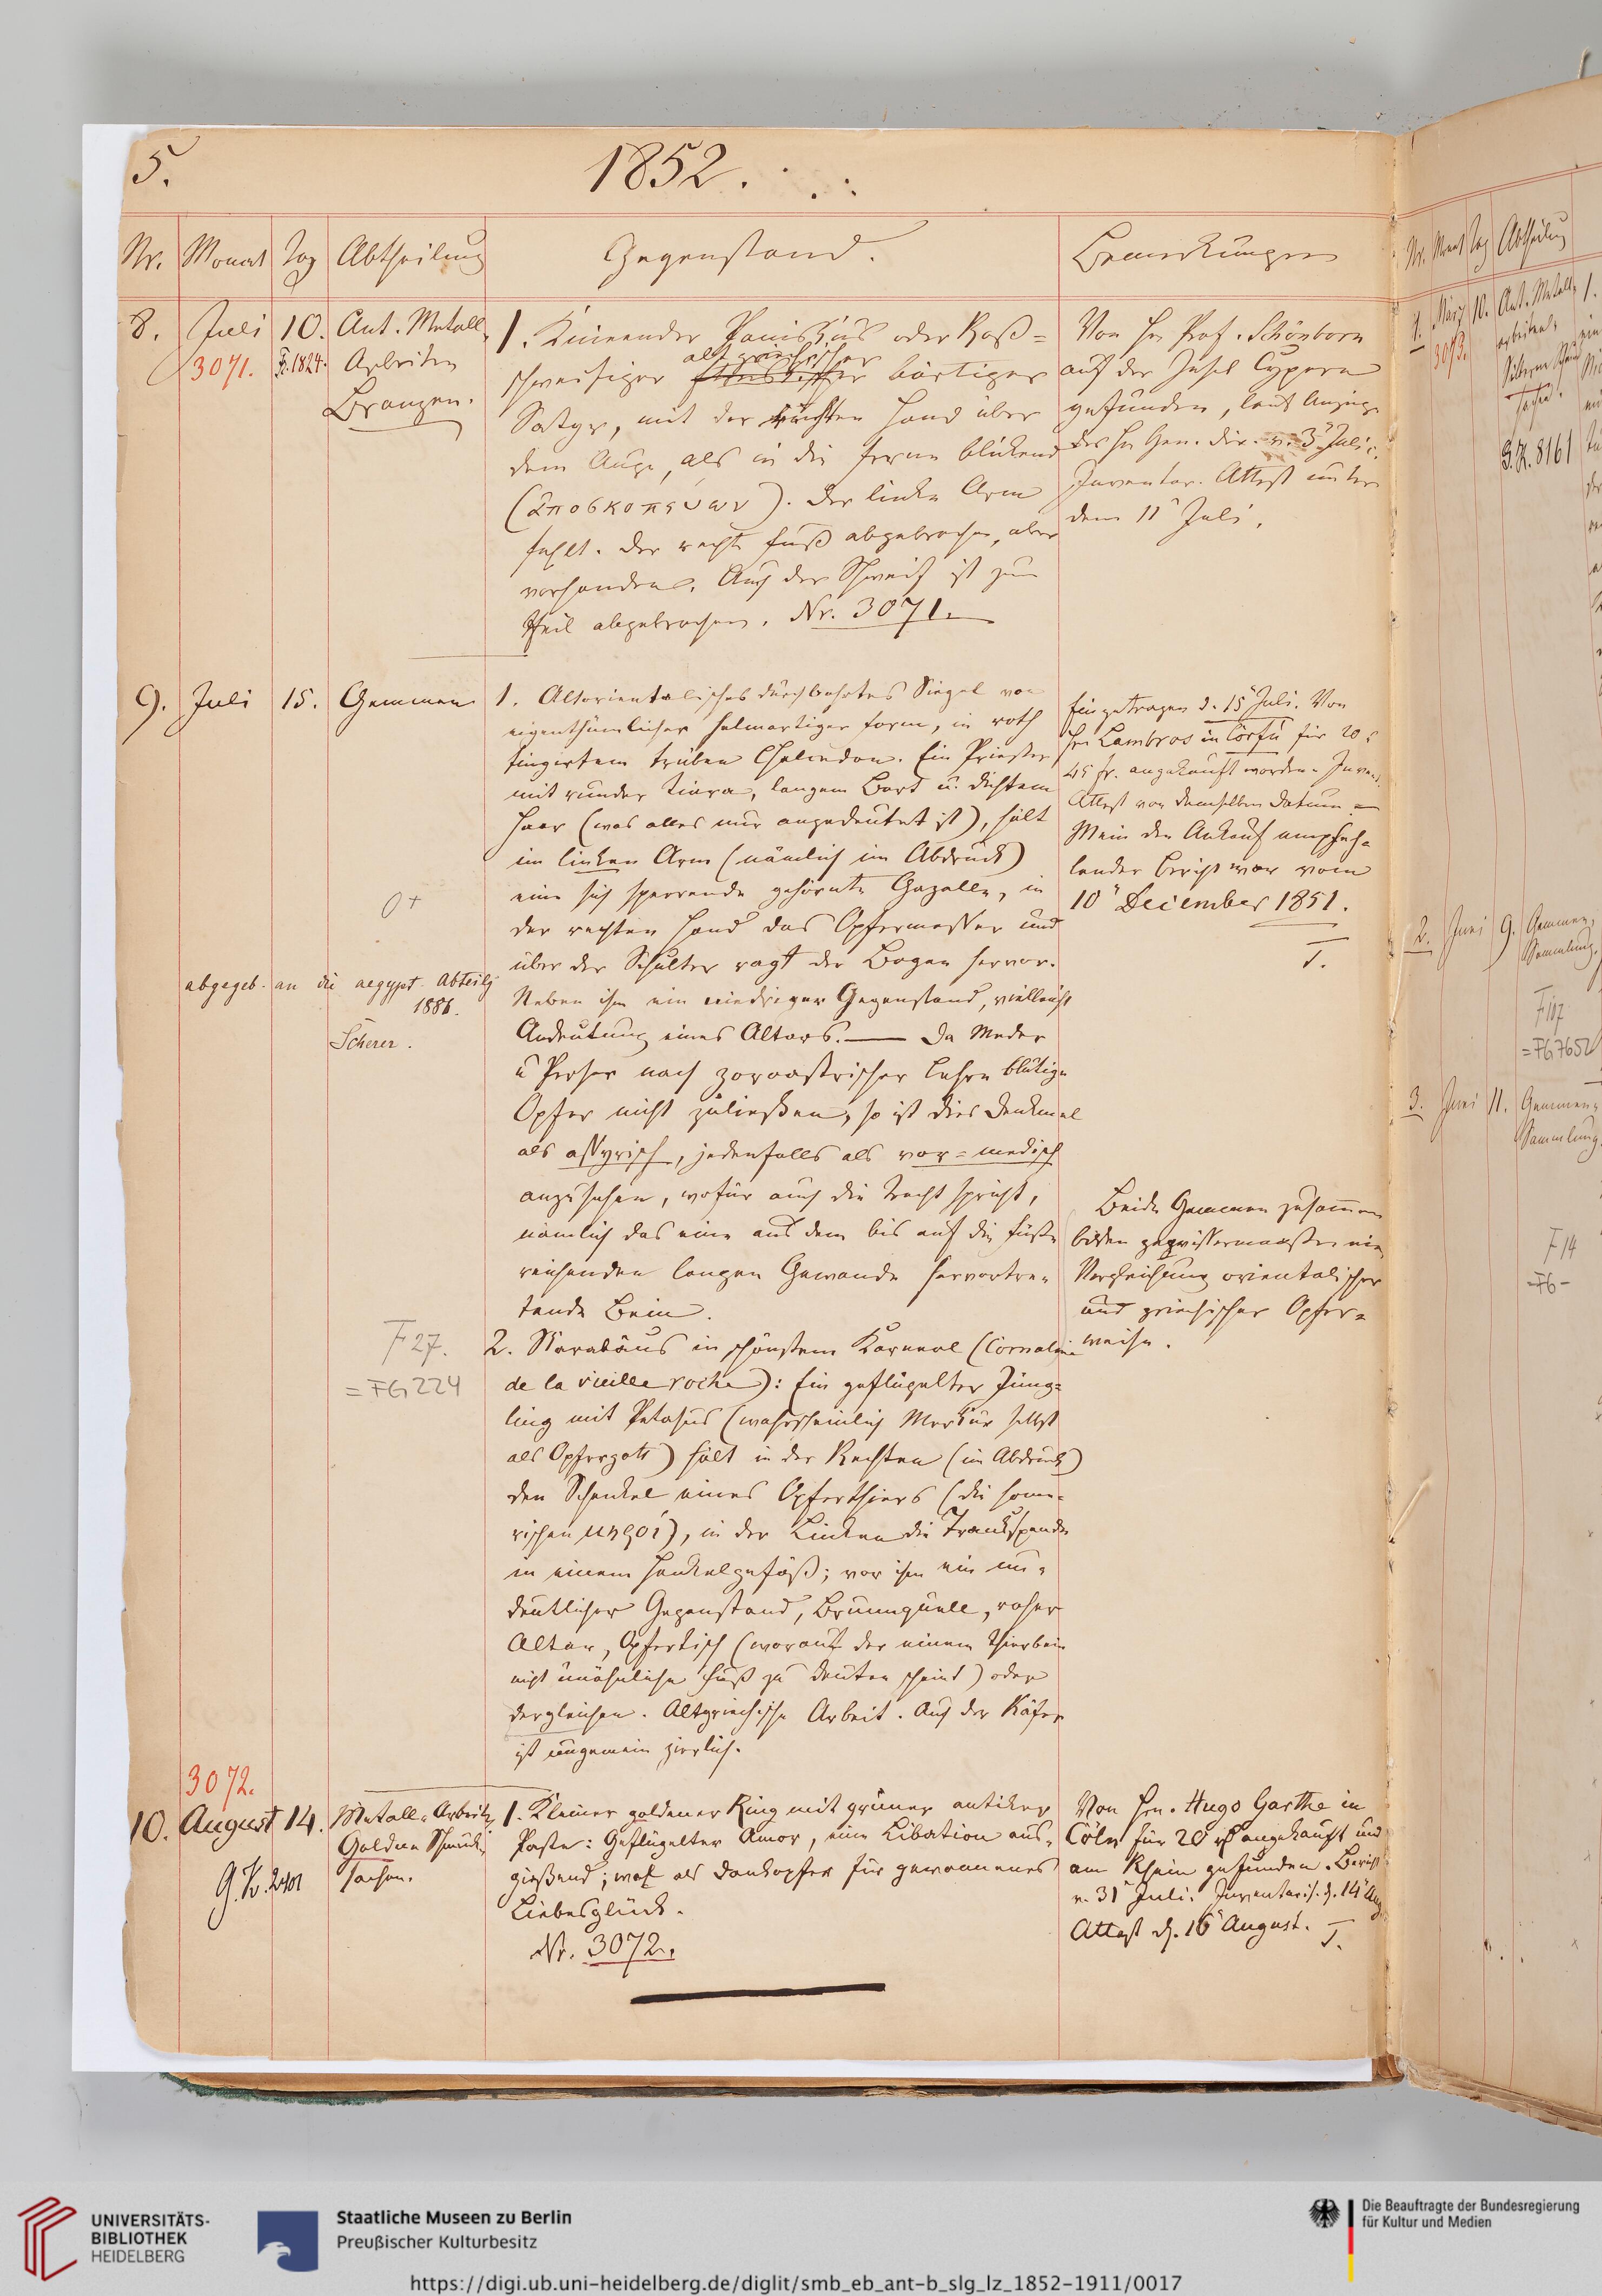 5.
1852.
Nr. Monat Tag Abtheilung Gegenstand. Bemerkungen
8. Juli 10. Ant. Metall-
3071. Fr. 1824. Arbeiten
Bronzen.
1. Knieender Paniskus oder Roß-
altgriechischer
schweifiger etruskischer bärtiger
Satyr, mit der rechten Hand über
dem Auge, als in die Ferne blickend
(ἀποσκοπεύων). Der linke Arm
fehlt. Der rechte Fuß abgebrochen, aber
vorhanden. Auch der Schweif ist zum
Theil abgebrochen. Nr. 3071.
Von Hr. Prof. Schönborn
auf der Insel Cypern
gefunden, laut Anzeige
des Hr. Gen. Dir. v. 3n Juli c.
Inventar. Attest unter
dem 11n Juli.
9. Juli 15. Gemmen
0+
abgegeb. an die aegypt. Abteilg
1886.
Scherer.
1. Altorientalisches durchbohrtes Siegel von
eigenthümlicher helmartiger Form, in roth
tingirtem trüben Chalcedon. Ein Priester
mit runder Tiara, langem Bart u. dichtem
Haar (was alles nur angedeutet ist), hält
im linken Arm (nämlich im Abdruck)
eine sich sperrende gehörnte Gazelle, in
der rechten Hand das Opfermesser und
über der Schulter ragt der Bogen hervor.
Neben ihm ein niedriger Gegenstand, vielleicht
Andeutung eines Altars. — Da Meder
u Perser nach zoroastrischer Lehre blutige
Opfer nicht zuließen, so ist dies Denkmal
als assyrisch, jedenfalls als vor-medisch
anzusehen, wofür auch die Tracht spricht,
nämlich das eine aus dem bis auf die Füße
reichenden langen Gewande hervortre-
tende Bein.
Eingetragen d. 15n Juli. Von
Hr. Lambros in Corfu für 20 £
45 fr. angekauft worden. Invent.
Attest von demselben Datum —
Mein den Ankauf empfeh-
lender Bericht war vom
10n December 1851.
T.
Beide Gemmen zusammen
bilden gewissermaaßen eine
Vergleichung orientalischer
und griechischer Opfer-
weise.
F 27.
= FG 224
2. Skarabäus in schönstem Karneol (Cornaline
de la vieille roche): Ein geflügelter Jüng-
ling mit Petasus (wahrscheinlich Merkur selbst
als Opfergott) hält in der Rechten (im Abdruck)
den Schenkel eines Opferthiers (die home-
rischen μηροί), in der Linken die Trankspende
in einem Henkelgefäß; vor ihm ein un-
deutlicher Gegenstand, Brunnquell, roher
Altar, Opfertisch (worauf der einem Thierbein
nicht unähnliche Fuß zu deuten scheint) oder
dergleichen. Altgriechische Arbeit. Auch der Käfer
ist ungemein zierlich.
3072.
10. August 14. Metall-Arbeit.
Goldne Schmuck-
sachen.
1. Kleiner goldener Ring mit grüner antiker
Paste: Geflügelter Amor, eine Libation aus-
gießend; wohl als Dankopfer für gewonnenes
Liebesglück.
Nr. 3072.
Von Hrn. Hugo Garthe in
Cöln für 20 rℓ angekauft und
am Rhein gefunden. Bericht
v. 31n Juli. Inventaris. d. 14n Aug.
Attest d. 16n August. T.
Nr. Monat Tag Abtheilung
1. März 10. Ant. Metall-
3073. arbeiten,
G.K. 8161
2. Juni 9. Gemmen-
Sammlung.
F 107
= FG 7652
3. Juni 11. Gemmen-
Sammlung.
F 14
=FG-
UNIVERSITÄTS-
BIBLIOTHEK
HEIDELBERG
Staatliche Museen zu Berlin
Preußischer Kulturbesitz
Die Beauftragte der Bundesregierung
für Kultur und Medien
https://digi.ub.uni-heidelberg.de/diglit/smb_eb_ant-b_slg_lz_1852-1911/0017